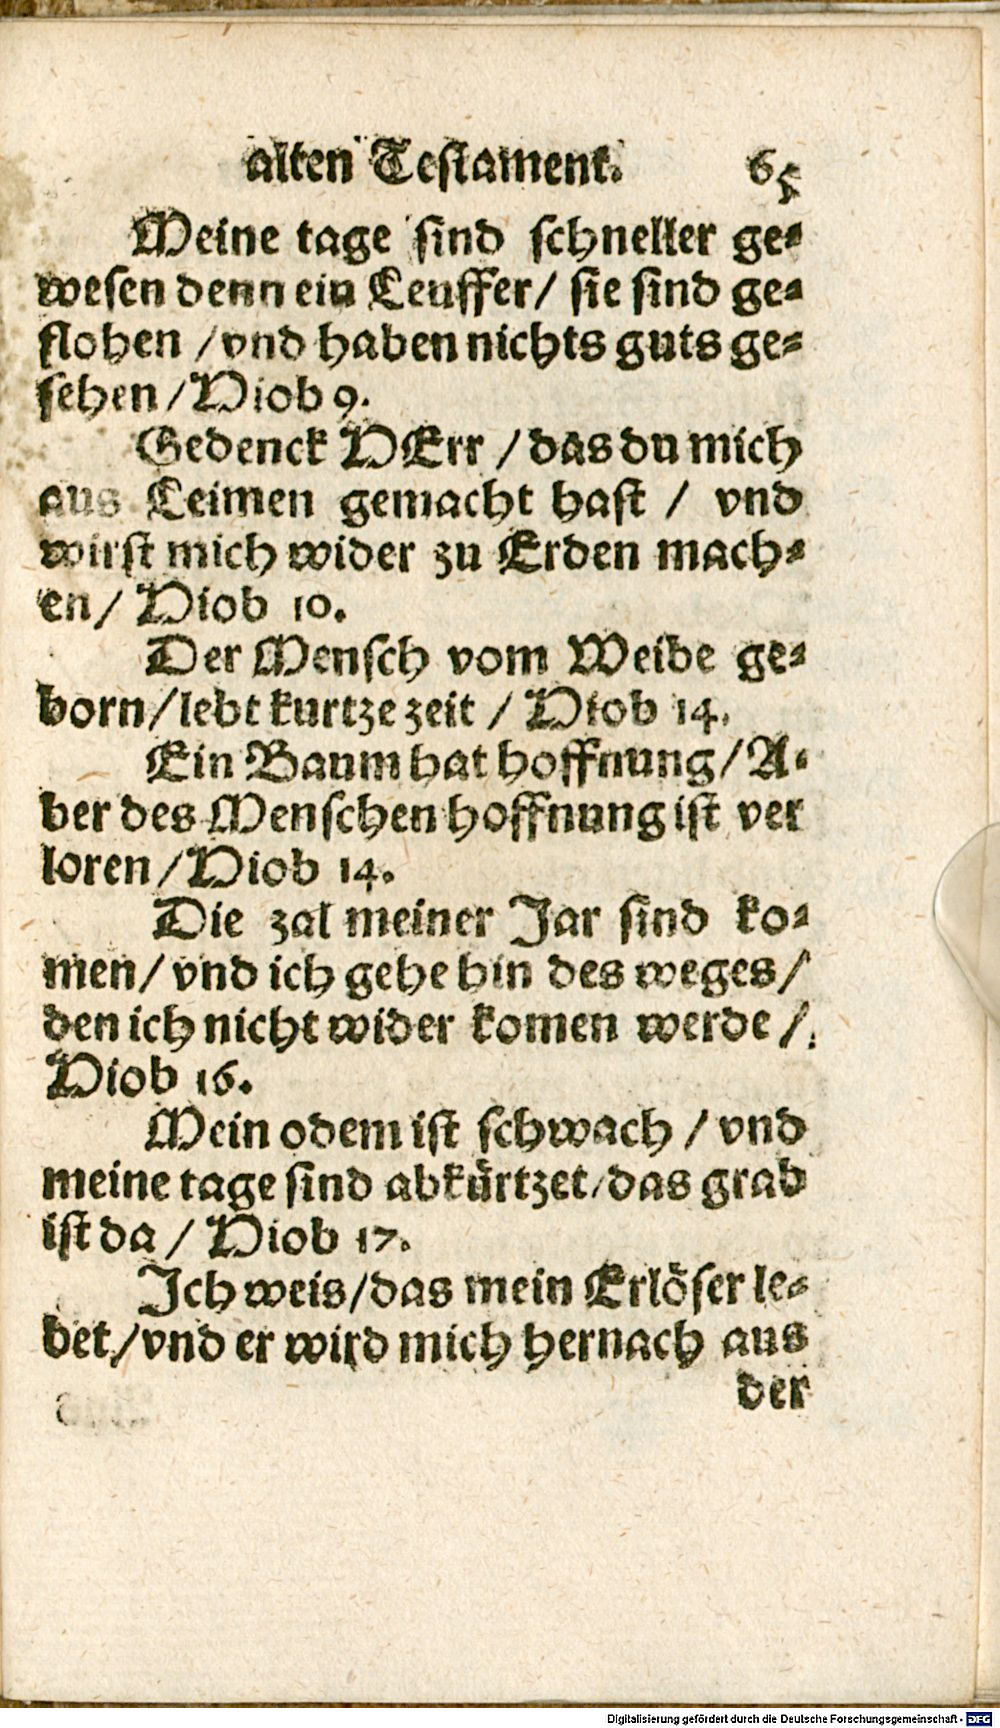 alten Testament. 65
Meine tage sind schneller ge-
wesen denn ein Leuffer/ sie sind ge-
flohen /vnd haben nichts guts ge-
sehen/Hiob 9.
Gedenck HErr /das du mich
aus Leimen gemacht hast / vnd
wirst mich wider zu Erden mach-
en/ Hiob 10.
Der Mensch vom Weibe ge-
born/lebt kurtze zeit / Hiob 14.
Ein Baum hat hoffnung/A-
ber des Menschen hoffnung ist ver
loren/Hiob 14.
Die zal meiner Jar sind ko-
men/ vnd ich gehe hin des weges/
den ich nicht wider komen werde/.
Hiob 16.
Mein odem ist schwach / vnd
meine tage sind abkürtzet/das grab
ist da / Hiob 17.
Ich weis/das mein Erlöser le-
bet/vnd er wird mich hernach aus
der
Digitalisierung gefördert durch die Deutsche Forschungsgemeinschaft - DFG